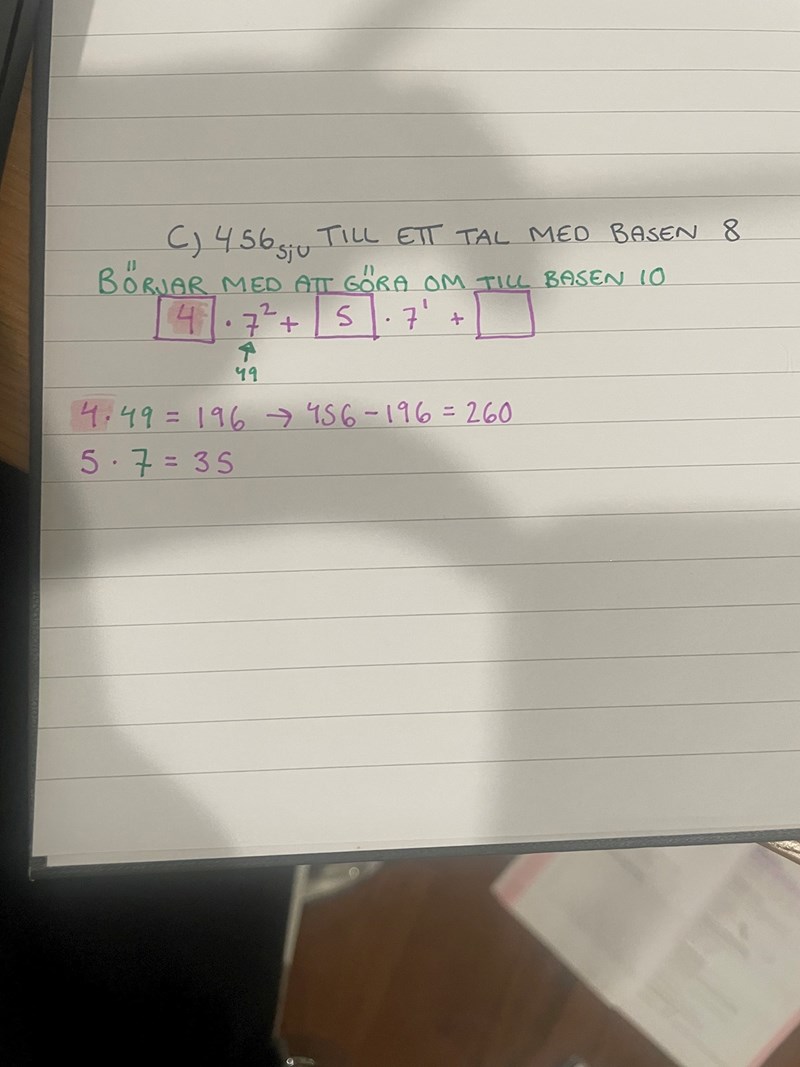 C) 456sju TILL ETT TAL MED BASEN 8
BÖRJAR MED ATT GÖRA OM TILL BASEN 10
4 · 7² + 5 · 7¹ +
49
4 · 49 = 196 → 456 - 196 = 260
5 · 7 = 35